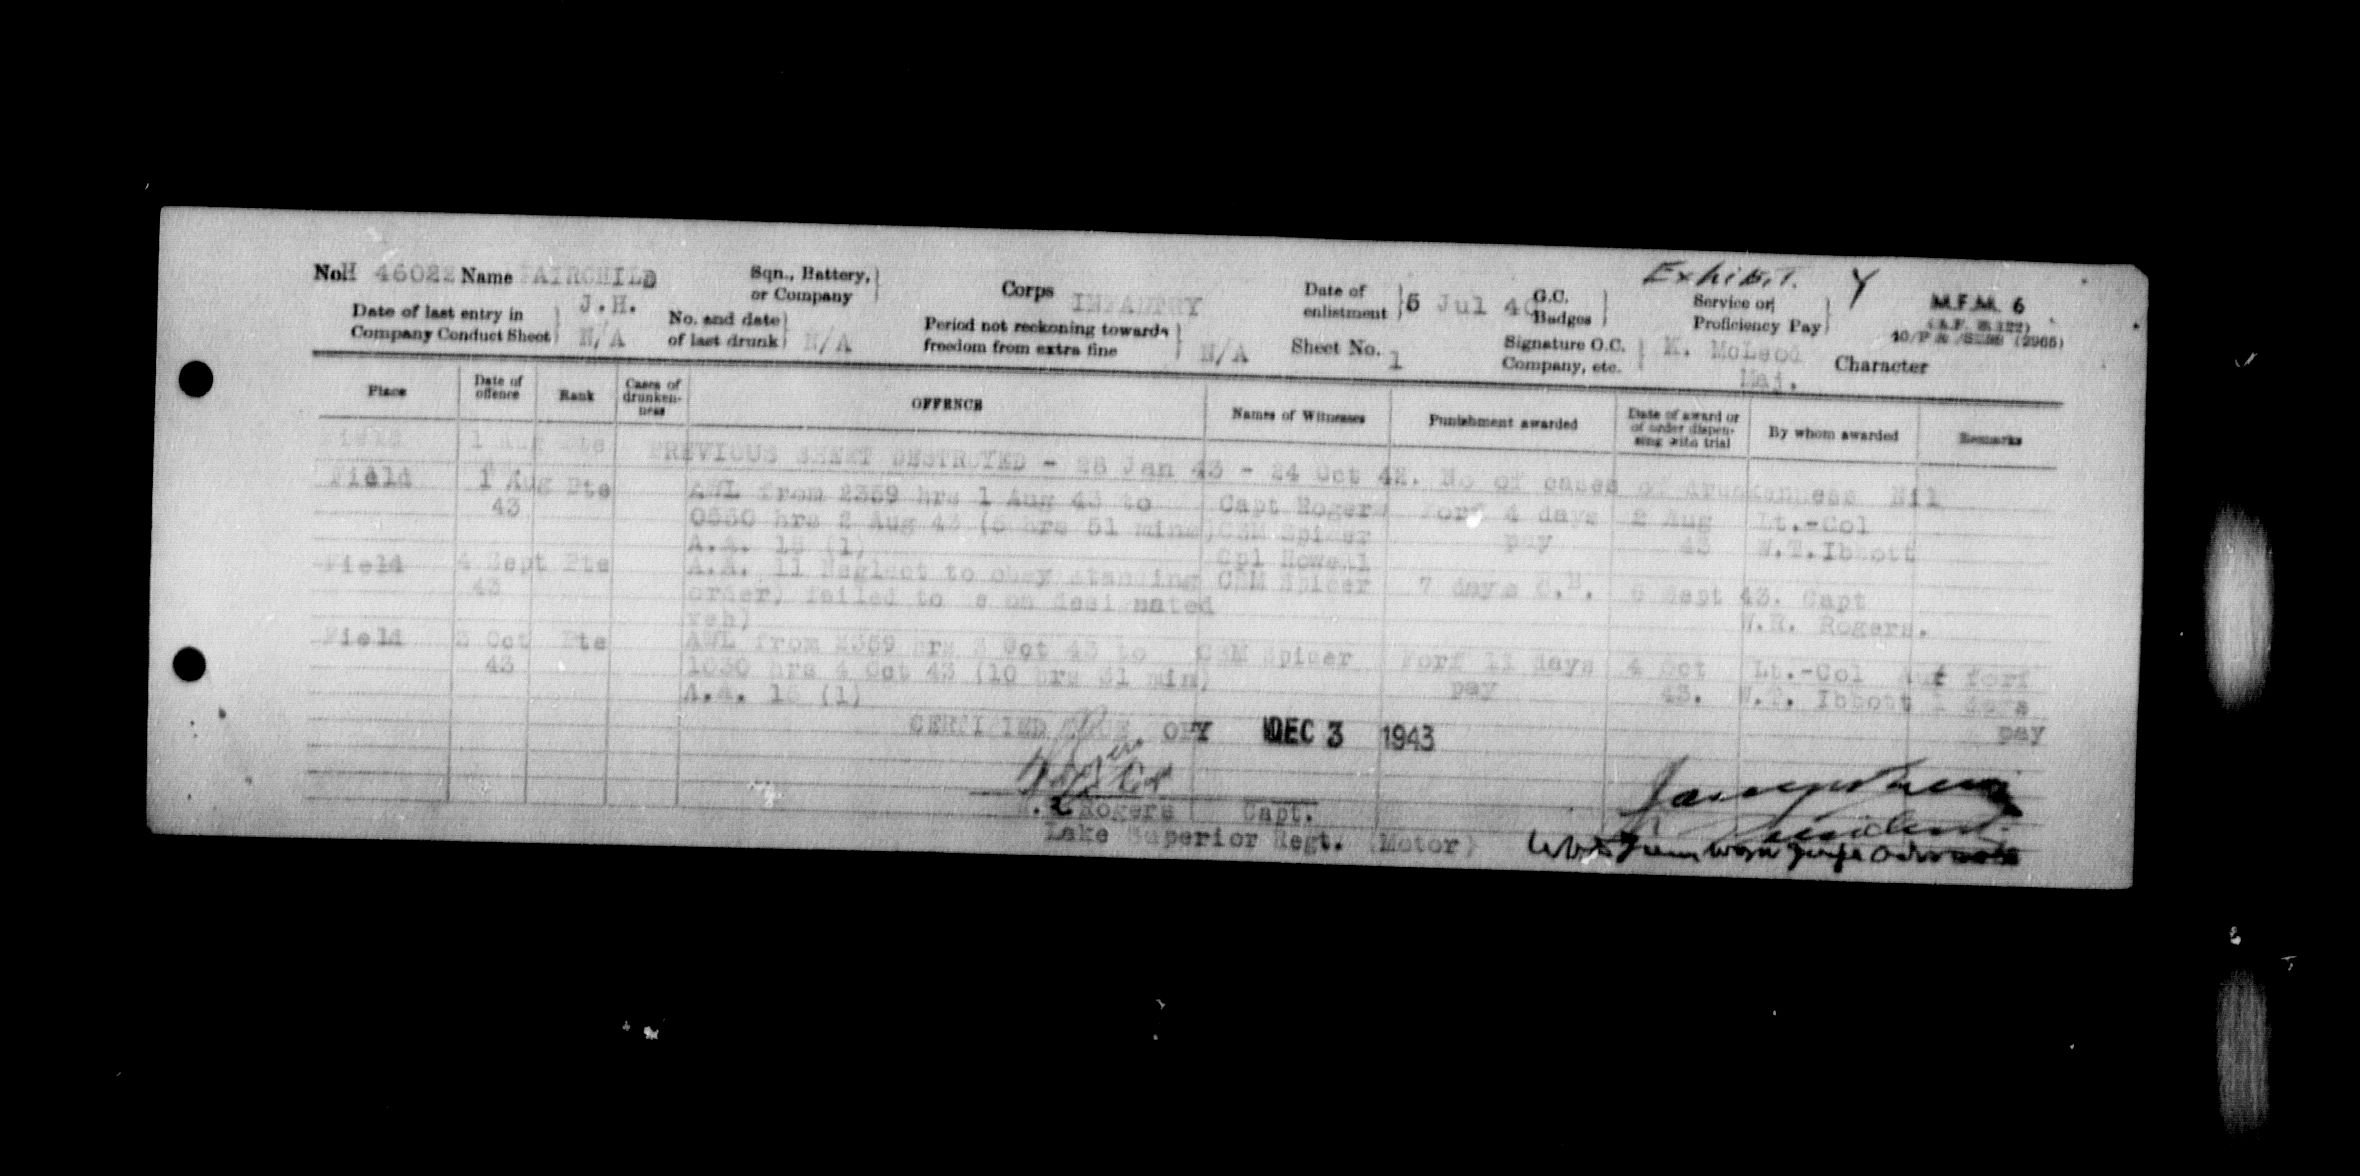 Exhibit. Y
No. H 46022 Name FAIRCHILD J.H. Sqn., Battery, or Company Corps INFANTRY Date of enlistment 5 Jul 40 G.C. Badges Service or Proficiency Pay M.F.M. 6
Date of last entry in Company Conduct Sheet N/A No. and date of last drunk N/A Period not reckoning towards freedom from extra fine N/A Sheet No. 1 Signature O.C. Company, etc. K. McLeod Maj. Character
Place Date of offence Rank Cases of drunkenness OFFENCE Names of Witnesses Punishment awarded Date of award or of order dispensing with trial By whom awarded Remarks
Field 1 Aug Pte
PREVIOUS SHEET DESTROYED - 28 Jan 43 - 24 Oct 42. No of cases of drunkenness Nil
Field 1 Aug Pte AWL from 2359 hrs 1 Aug 43 to Capt Rogers Forf 4 days 2 Aug Lt.-Col
43 hrs 2 Aug 43 hrs 51 mins) CSM Spicer pay 43 W.T. Ibbott
A.A. 15 (1) Cpl Howell
Field 4 Sept Pte A.A. 11 Neglect to obey standing CSM Spicer 7 days C.B. 6 Sept 43. Capt
43 order) failed to be on designated Rogers.
veh)
Field 3 Oct Pte AWL from 2359 hrs 3 Oct 43 to CSM Spicer Forf 11 days 4 Oct Lt.-Col Aut forf
43 1030 hrs 4 Oct 43 (10 hrs 31 min) pay 43. W.T. Ibbott 1 days
A.A. 15 (1) pay
CERTIFIED TRUE COPY DEC 3 1943
Rogers Capt.
Lake Superior Regt. (Motor)